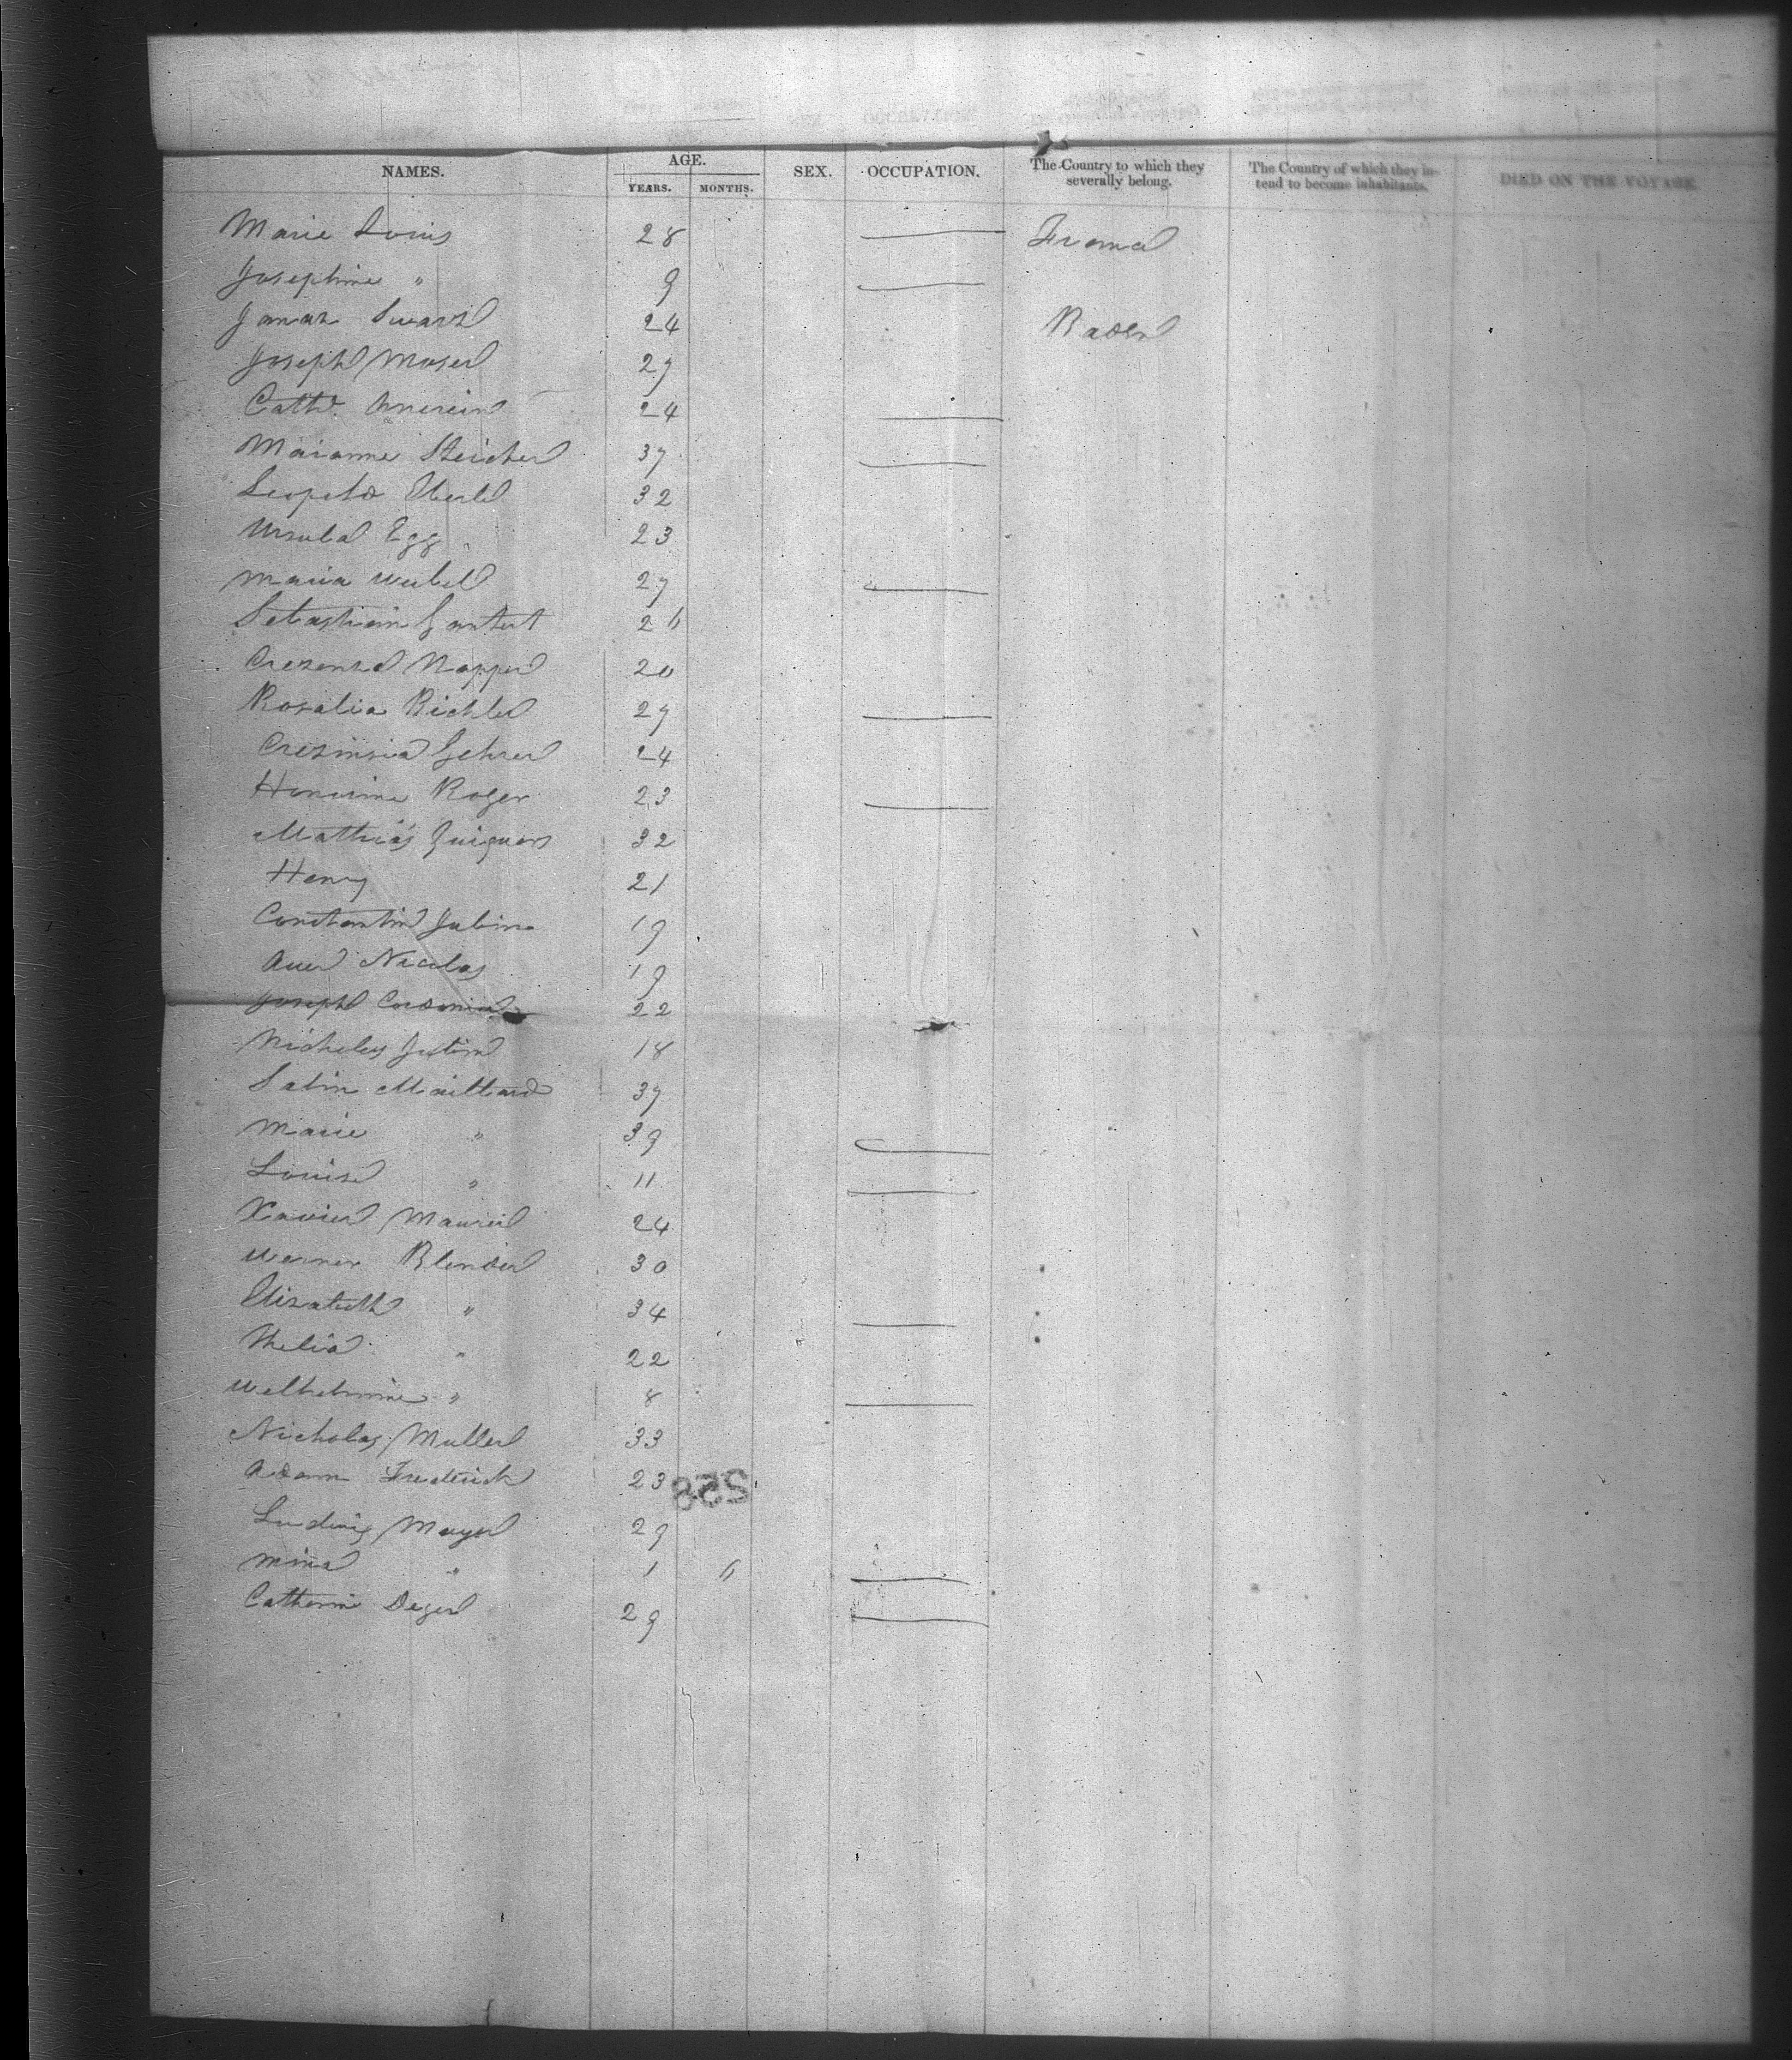 NAMES. AGE. SEX. OCCUPATION. The Country to which they severally belong. The Country of which they intend to become inhabitants. DIED ON THE VOYAGE
YEARS. MONTHS.
Marie Louis 28 France
Josephine " 9
Swarz 24 Baden
Joseph Moser 27
Cath. 24
Marianne Steicher 37
Leopold Eberle 32
Ursula Egg 23
Maria Weibel 27
Sebastian Gantert 26
Crezenza Napper 20
Rosalia Bichler 27
Crezinsia Gehrer 24
Roger 23
Mathias 32
Henry 21
Constantin Jubin 19
Nicolas 19
Joseph 22
Nicholas Justin 18
Sabin Maillard 37
Marie " 39
Louise " 11
Xavier Maurer 24
Werner Blender 30
Elisabeth " 34
22
Wilhelmine " 8
Nicholas Muller 33
Adam Frederick 23
258
Ludwig Mayer 29
Mina " 1 6
Catherine Deger 29